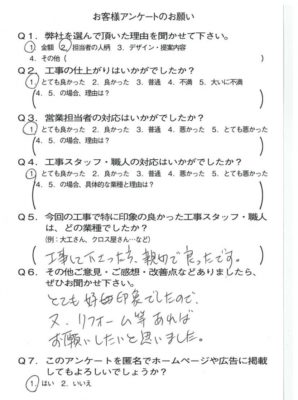 お客様アンケートのお願い
Q1. 弊社を選んで頂いた理由を聞かせて下さい。
1. 金額 2. 担当者の人柄 3. デザイン・提案内容
4. その他 ( )
Q2. 工事の仕上がりはいかがでしたか?
1. とても良かった 2. 良かった 3. 普通 4. 不満 5. 大いに不満
( 4. 5. の場合、理由は? )
Q3. 営業担当者の対応はいかがでしたか?
1. とても良かった 2. 良かった 3. 普通 4. 悪かった 5. とても悪かった
( 4. 5. の場合、理由は? )
Q4. 工事スタッフ・職人の対応はいかがでしたか?
1. とても良かった 2. 良かった 3. 普通 4. 悪かった 5. とても悪かった
( 4. 5. の場合、具体的な業種と理由は? )
Q5. 今回の工事で特に印象の良かった工事スタッフ・職人
は、どの業種でしたか?
(例:大工さん、クロス屋さん…など)
( 工事して下さった方、親切で良ったです。 )
Q6. その他ご意見・ご感想・改善点などありましたら、
ぜひお聞かせ下さい。
とても好印象でしたので、
又、リフォーム等あれば
お願いしたいと思いました。
Q7. このアンケートを匿名でホームページや広告に掲載
してもよろしいでしょうか?
1. はい 2. いいえ